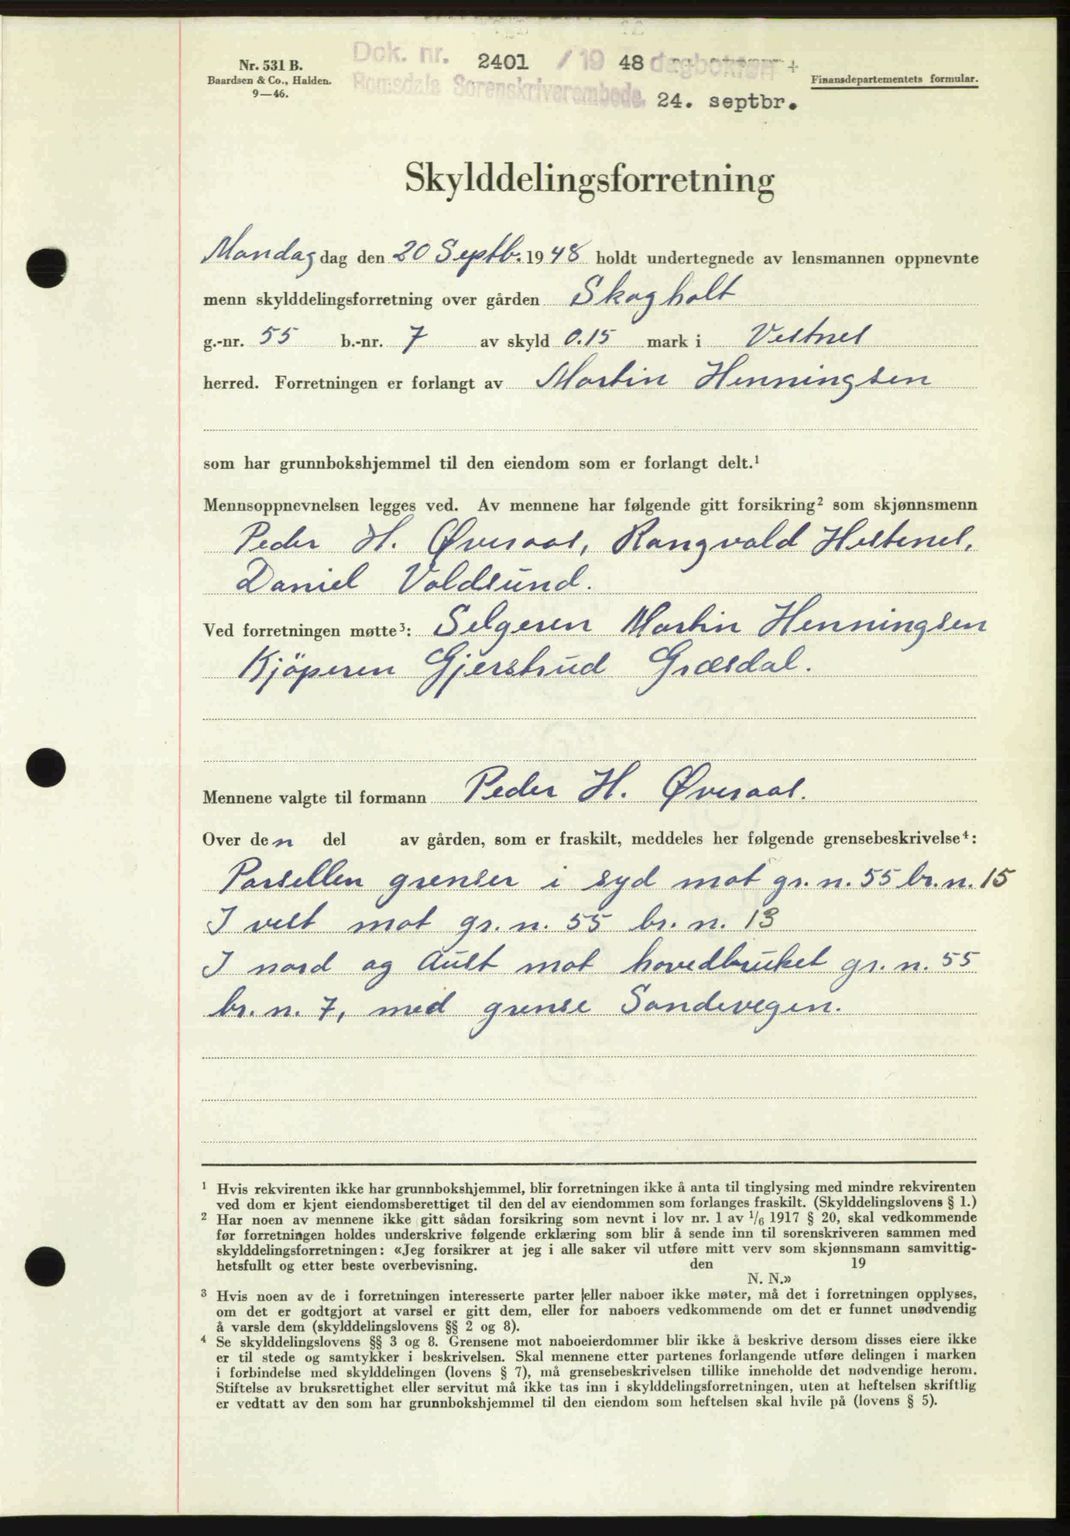 Nr. 531 B.
Baardsen & Co., Halden.
9—46.
Dok. nr. 2401 / 19 48 dagbokført
Romsdals Sorenskriverembede. 24. septbr.
Finansdepartementets formular.
Skylddelingsforretning
Mandag dag den 20 Septb. 1948 holdt undertegnede av lensmannen oppnevnte
menn skylddelingsforretning over gården Skogholt
g.-nr. 55 b.-nr. 7 av skyld 0.15 mark i Vestnes
herred. Forretningen er forlangt av Martin Henningsen
som har grunnbokshjemmel til den eiendom som er forlangt delt.¹
Mennsoppnevnelsen legges ved. Av mennene har følgende gitt forsikring² som skjønnsmenn
Peder H. Øveraas, Rangvald Hestenes,
Daniel Voldsund.
Ved forretningen møtte³: Selgeren Martin Henningsen
Kjöperen Gjerstrud Græsdal.
Mennene valgte til formann Peder H. Øveraas.
Over den del av gården, som er fraskilt, meddeles her følgende grensebeskrivelse⁴:
Parsellen grenser i syd mot gr. n. 55 br. n. 15
I vest mot gr. n. 55 br. n. 13
I nord og Aust mot hovedbruket gr. n. 55
br. n. 7, med grense Sandevegen.
¹ Hvis rekvirenten ikke har grunnbokshjemmel, blir forretningen ikke å anta til tinglysing med mindre rekvirenten
ved dom er kjent eiendomsberettiget til den del av eiendommen som forlanges fraskilt. (Skylddelingslovens § 1.)
² Har noen av mennene ikke gitt sådan forsikring som nevnt i lov nr. 1 av 1/6 1917 § 20, skal vedkommende
før forretningen holdes underskrive følgende erklæring som blir å sende inn til sorenskriveren sammen med
skylddelingsforretningen: «Jeg forsikrer at jeg i alle saker vil utføre mitt verv som skjønnsmann samvittig-
hetsfullt og etter beste overbevisning. den 19
N. N.»
³ Hvis noen av de i forretningen interesserte parter eller naboer ikke møter, må det i forretningen opplyses,
om det er godtgjort at varsel er gitt dem, eller for naboers vedkommende om det er funnet unødvendig
å varsle dem (skylddelingslovens §§ 2 og 8).
⁴ Se skylddelingslovens §§ 3 og 8. Grensene mot naboeierdommer blir ikke å beskrive dersom disses eiere ikke
er til stede og samtykker i beskrivelsen. Skal mennene etter partenes forlangende utføre delingen i marken
i forbindelse med skylddelingen (lovens § 7), må grensebeskrivelsen tillike inneholde det nødvendige herom.
Stiftelse av bruksrettighet eller servitut må ikke tas inn i skylddelingsforretningen, uten at heftelsen skriftlig
er vedtatt av den som har grunnbokshjemmel til den eiendom som heftelsen skal hvile på (lovens § 5).